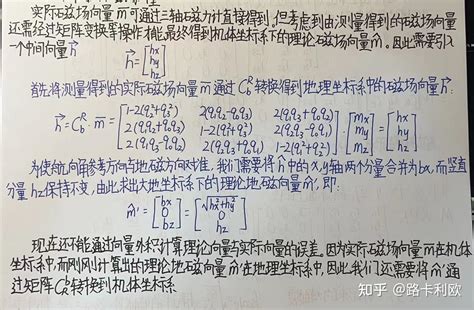 实际磁场向量m可通过三轴磁力计直接得到,但考虑到由测量得到的磁场向量
还需经过矩阵变换等操作才能最终得到机体坐标系下的理论磁场向量m̂。因此需要引入
一个中间向量h
h = [hx hy hz]
首先将测量得到的实际磁场向量m通过C_b^R转换得到地理坐标系中的磁场向量h:
h = C_b^R · m = [1-2(q₂²+q₃²) 2(q₁q₂-q₀q₃) 2(q₁q₃+q₀q₂)] [mx] = [hx]
[2(q₁q₂+q₀q₃) 1-2(q₁²+q₃²) 2(q₂q₃-q₀q₁)] [my] [hy]
[2(q₁q₃-q₀q₂) 2(q₂q₃+q₀q₁) 1-2(q₁²+q₂²)] [mz] [hz]
为使航向角参考方向与地磁方向对准,我们需要将h中的x,y轴两个分量合并为bx,而竖直
分量hz保持不变,由此求出大地坐标系下的理论地磁向量m',即:
m' = [bx 0 bz] = [√hx²+hy² 0 hz]
现在还不能通过向量外积计算理论向量与实际向量的误差。因为实际磁场向量m在机体
坐标系中,而刚刚计算出的理论地磁向量m'在地理坐标系中,因此我们还需要将m'通
过矩阵C_R^b转换到机体坐标系
知乎 @路卡利欧